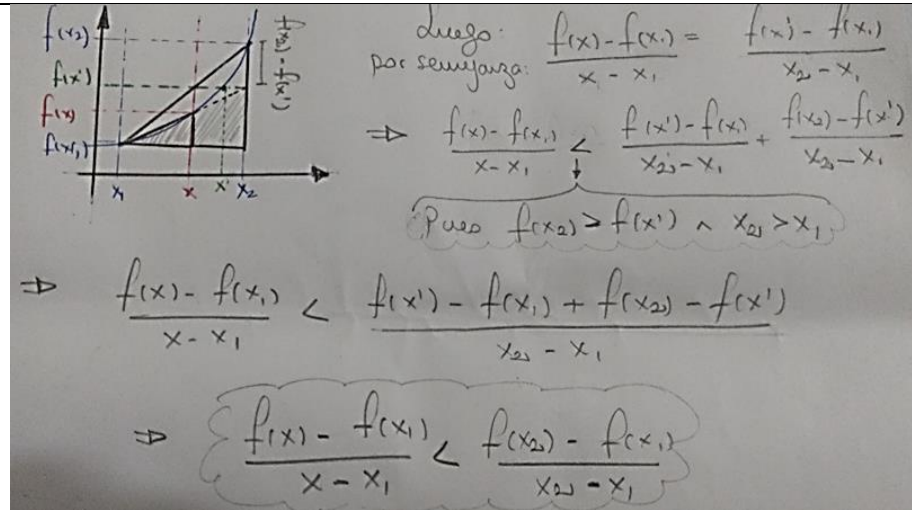 f(x₂)
f(x')
f(x)
f(x₁)
f(x₂) - f(x')
x₁ x x' x₂
Luego:
por semejanza: \frac{f(x) - f(x₁)}{x - x₁} = \frac{f(x') - f(x₁)}{x₂ - x₁}
⇒ \frac{f(x) - f(x₁)}{x - x₁} < \frac{f(x') - f(x₁)}{x₂ - x₁} + \frac{f(x₂) - f(x')}{x₂ - x₁}
Pues f(x₂) > f(x') ∧ x₂ > x₁
⇒ \frac{f(x) - f(x₁)}{x - x₁} < \frac{f(x') - f(x₁) + f(x₂) - f(x')}{x₂ - x₁}
⇒ \frac{f(x) - f(x₁)}{x - x₁} < \frac{f(x₂) - f(x₁)}{x₂ - x₁}